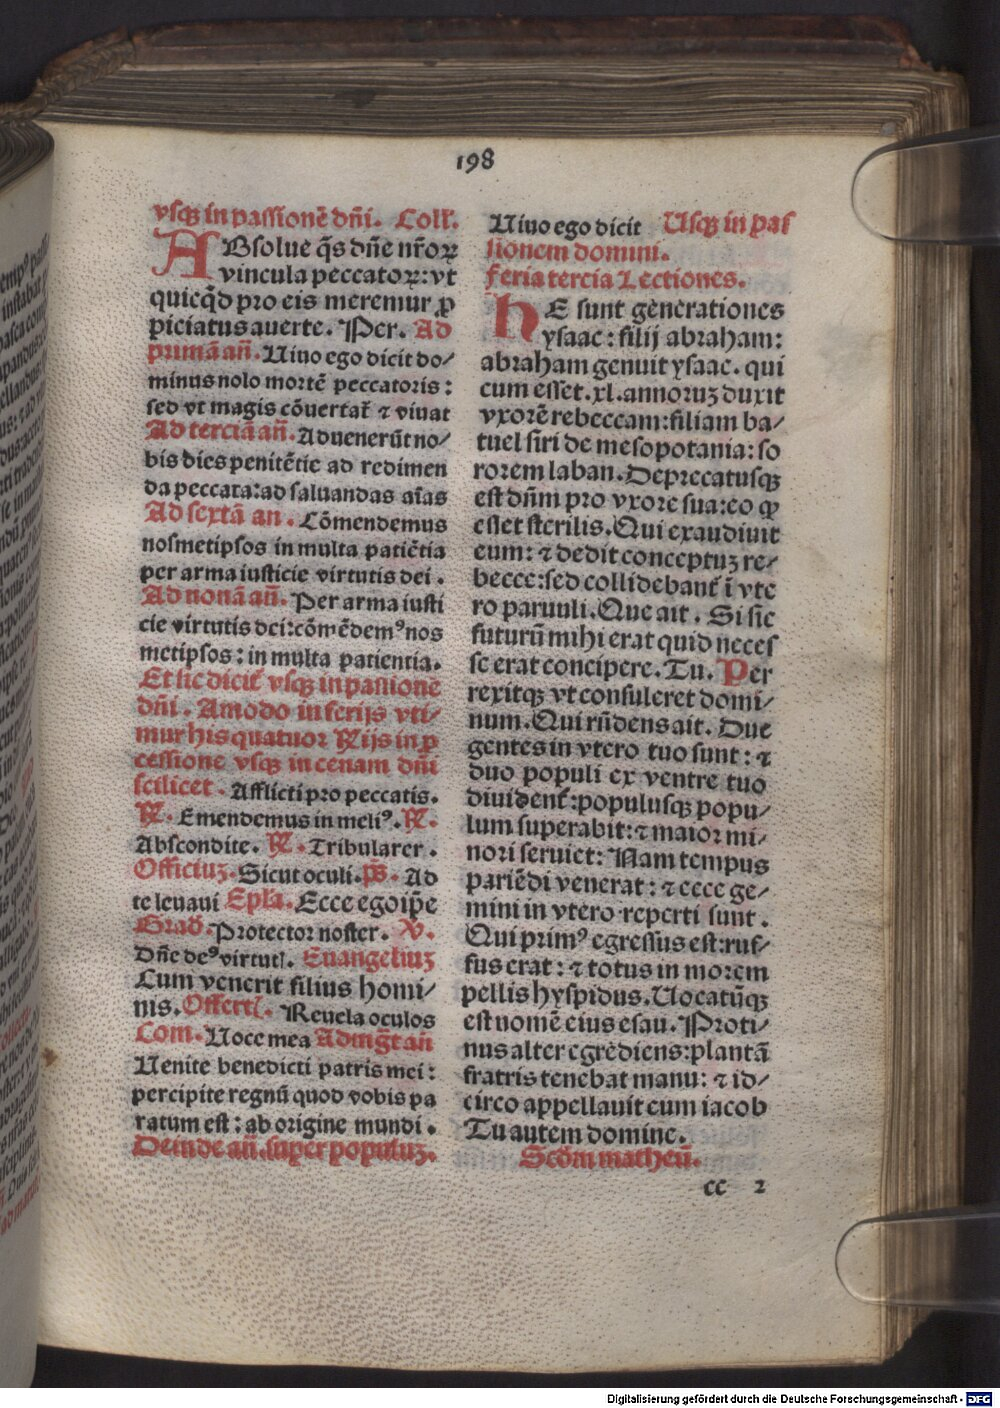 198
vsqꝫ in passionē dn̄i. Coll.
ABsolue q̄s dn̄e nr̄oꝝ
vincula peccatoꝝ: vt
quicq̇d pro eis meremur ꝓ
piciatus auerte. Per. Ad
primā an̄. Uiuo ego dicit do/
minus nolo mortē peccatoris:
sed vt magis cōuertat̄ ⁊ viuat
Ad terciā an̄. Aduenerūt no/
bis dies penitētie ad redimen
da peccata: ad saluandas aīas
Ad sextā an. Cōmendemus
nosmetipsos in multa patiētia
per arma iusticie virtutis dei.
Ad nonā an̄. Per arma iusti
cie virtutis dei: cōmēdemꝰ nos
metipsos: in multa patientia.
Et sic dicit̄ vsqꝫ in passionē
dn̄i. Amodo in ferijs vti/
mur his quatuor Rijs in ꝓ
cessione vsqꝫ in cenam dn̄i
scilicet. Afflicti pro peccatis.
R̄. Emendemus in meliꝰ. R̄.
Abscondite. R̄. Tribularer.
Officiuꝫ. Sicut oculi. ps̄. Ad
te leuaui Epl̄a. Ecce ego ip̄e
Grad̄. Protector noster. V.
Dn̄e deꝰ virtutꝭ. Euangeliuꝫ
Cum venerit filius homi/
nis. Offertꝭ. Reuela oculos
Com. Uoce mea Ad mḡt an̄
Uenite benedicti patris mei:
percipite regnū quod vobis pa
ratum est: ab origine mundi.
Deinde an̄. super populuꝫ.
Uiuo ego dicit Usqꝫ in pas
sionem domini.
Feria tercia Lectiones.
HE sunt generationes
ysaac: filij abraham:
abraham genuit ysaac. qui
cum esset. xl. annoruꝫ duxit
vxorē rebeccam: filiam ba/
tuel siri de mesopotania: so
rorem laban. Deprecatusqꝫ
est dn̄m pro vxore sua: eo ꝙ
esset sterilis. Qui exaudiuit
eum: ⁊ dedit conceptuꝫ re/
becce: sed collidebant̄ ī vte
ro paruuli. Que ait. Si sic
futurū mihi erat quid neces
se erat concipere. Tu. Per
rexitqꝫ vt consuleret domi/
num. Qui rn̄dens ait. Due
gentes in vtero tuo sunt: ⁊
duo populi ex ventre tuo
diuident̄: populusqꝫ popu/
lum superabit: ⁊ maior mi/
nori seruiet: Nam tempus
pariēdi venerat: ⁊ ecce ge/
mini in vtero reperti sunt.
Qui primꝰ egressus est: ruf/
fus erat: ⁊ totus in morem
pellis hyspidus. Uocatūqꝫ
est nomē eius esau. Proti/
nus alter egrediens: plantā
fratris tenebat manu: ⁊ id/
circo appellauit eum iacob
Tu autem domine.
Scdm matheū.
cc 2
Digitalisierung gefördert durch die Deutsche Forschungsgemeinschaft - DFG